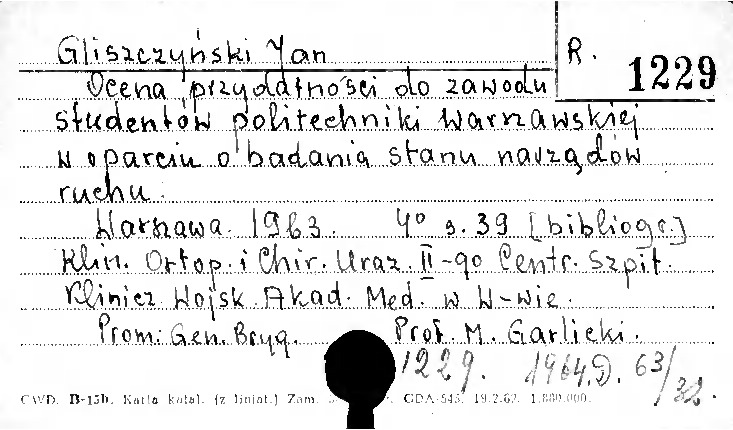 Gliszczyński Jan
R. 1229
Ocena przydatności do zawodu
studentów politechniki Warszawskiej
w oparciu o badania stanu narządów
ruchu.
Warszawa. 1963. 4° s. 39 [bibliogr.]
Klin. Ortop. i Chir. Uraz. II-go Centr. Szpit.
Klinicz. Wojsk. Akad. Med. w W-wie.
Prom: Gen. Bryg. Prof. M. Garlicki.
1229. 1964.D. 63/32.
CWD. B-15b. Karta katal. (z liniat.) Zam. GDA-545. 19.2.62. 1.800.000.